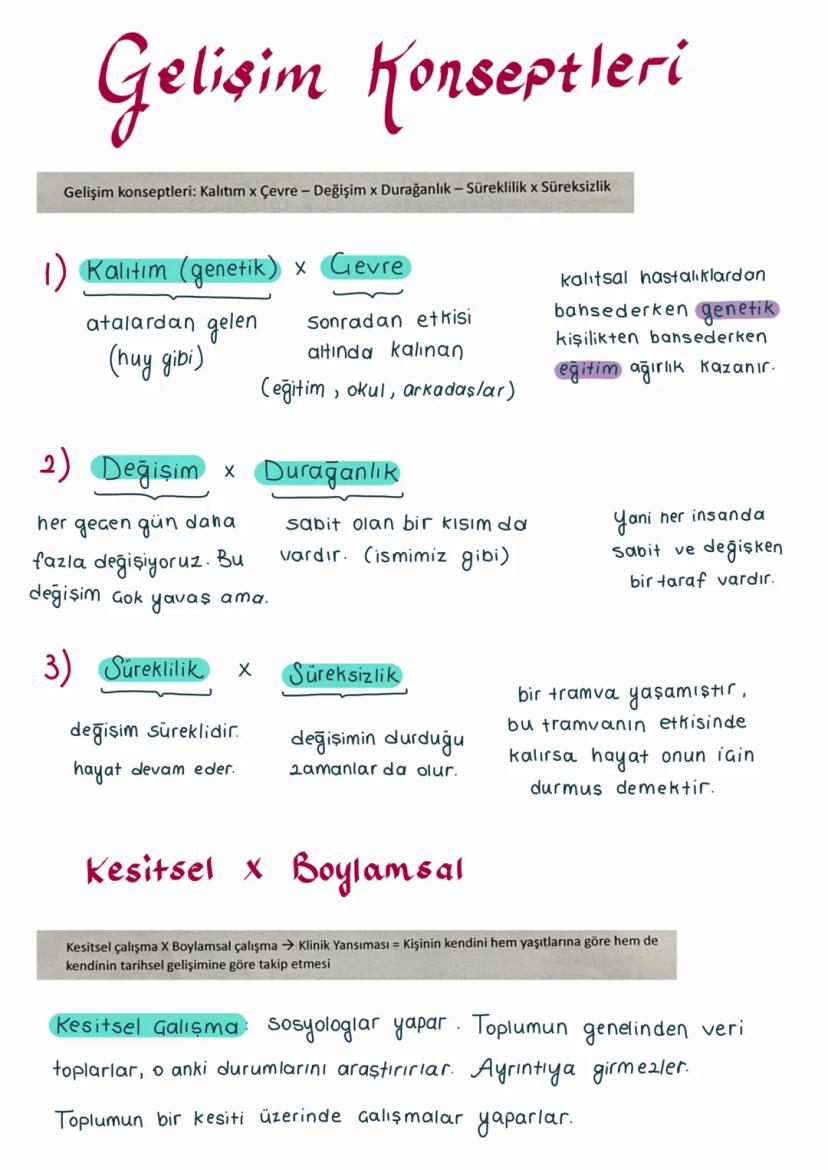 Gelişim Konseptleri
Gelişim konseptleri: Kalıtım x Çevre – Değişim x Durağanlık – Süreklilik x Süreksizlik
1) Kalıtım (genetik) x Çevre
atalardan gelen
(huy gibi)
sonradan etkisi
altında kalınan
(eğitim, okul, arkadaşlar)
kalıtsal hastalıklardan
bahsederken genetik
kişilikten bahsederken
eğitim ağırlık kazanır.
2) Değişim x Durağanlık
her geçen gün daha
fazla değişiyoruz. Bu
değişim çok yavaş ama.
sabit olan bir kısım da
vardır. (ismimiz gibi)
Yani her insanda
sabit ve değişken
bir taraf vardır.
3) Süreklilik x Süreksizlik
değişim süreklidir.
hayat devam eder.
değişimin durduğu
zamanlar da olur.
bir tramva yaşamıştır,
bu tramvanın etkisinde
kalırsa hayat onun için
durmuş demektir.
Kesitsel x Boylamsal
Kesitsel çalışma X Boylamsal çalışma → Klinik Yansıması = Kişinin kendini hem yaşıtlarına göre hem de
kendinin tarihsel gelişimine göre takip etmesi
Kesitsel Çalışma: sosyologlar yapar. Toplumun genelinden veri
toplarlar, o anki durumlarını araştırırlar. Ayrıntıya girmezler.
Toplumun bir kesiti üzerinde çalışmalar yaparlar.